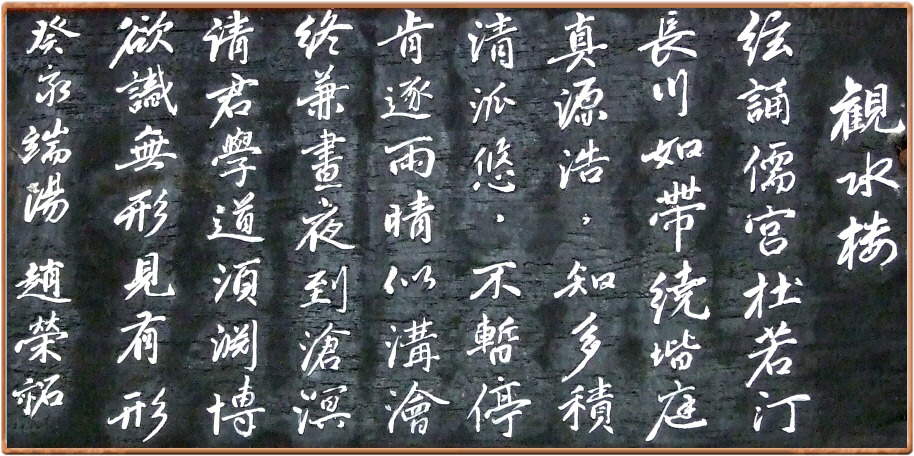 觀水楼
絃誦儒宮杜若汀
長川如帶繞堦庭
真源浩〻知多積
清派悠〻不暫停
肯逐雨晴似溝澮
終兼晝夜到滄溟
請君學道須淵博
欲識無形見有形
癸亥端陽 趙榮祏